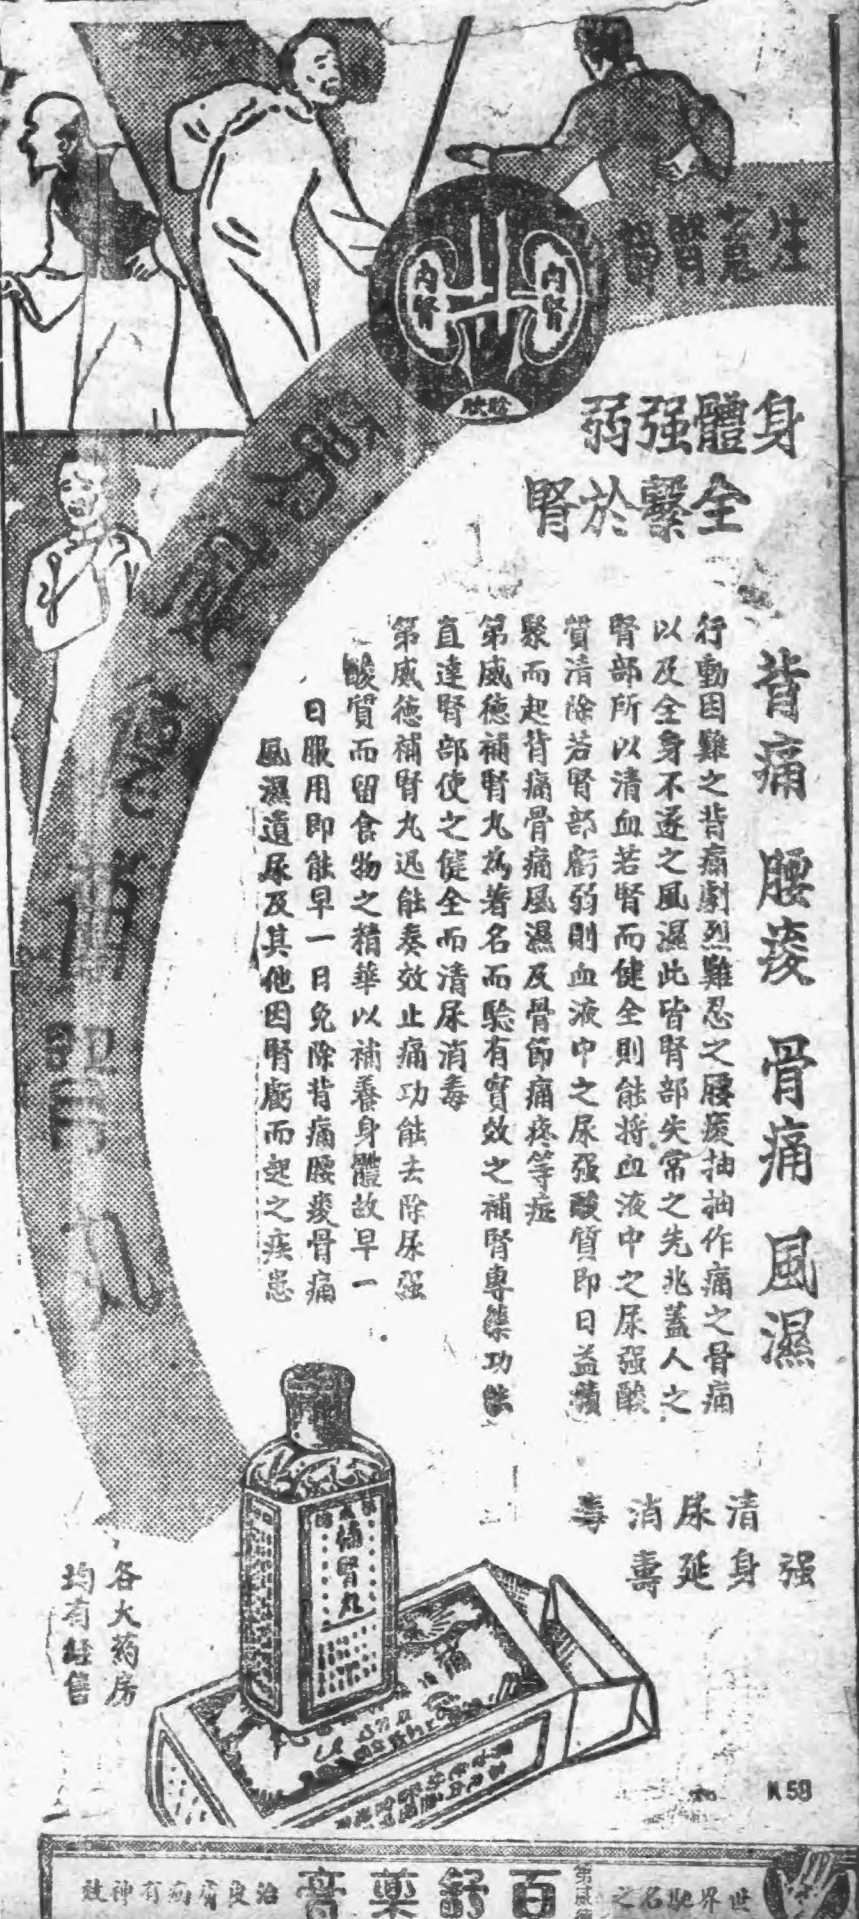 內腎
內腎
膀胱
身體強弱
全繫於腎
背痛 腰痠 骨痛 風濕
行動困難之背痛劇烈難忍之腰痠抽抽作痛之骨痛
以及全身不遂之風濕此皆腎部失常之先兆蓋人之
腎部所以清血若腎而健全則能將血液中之尿强酸
質清除若腎部虧弱則血液中之尿强酸質即日益積
聚而起背痛骨痛風濕及骨節痛疼等症
第威德補腎丸為著名而驗有實效之補腎專藥功能
直達腎部使之健全而清尿消毒
第威德補腎丸迅能奏效止痛功能去除尿强
酸質而留食物之精華以補養身體故早一
日服用即能早一日免除背痛腰痠骨痛
風濕遺尿及其他因腎虧而起之疾患
清尿消毒
强身延壽
補腎丸
各大药房
均有經售
K59
世界馳名之
第威德
百舒藥膏
治皮膚病有神效